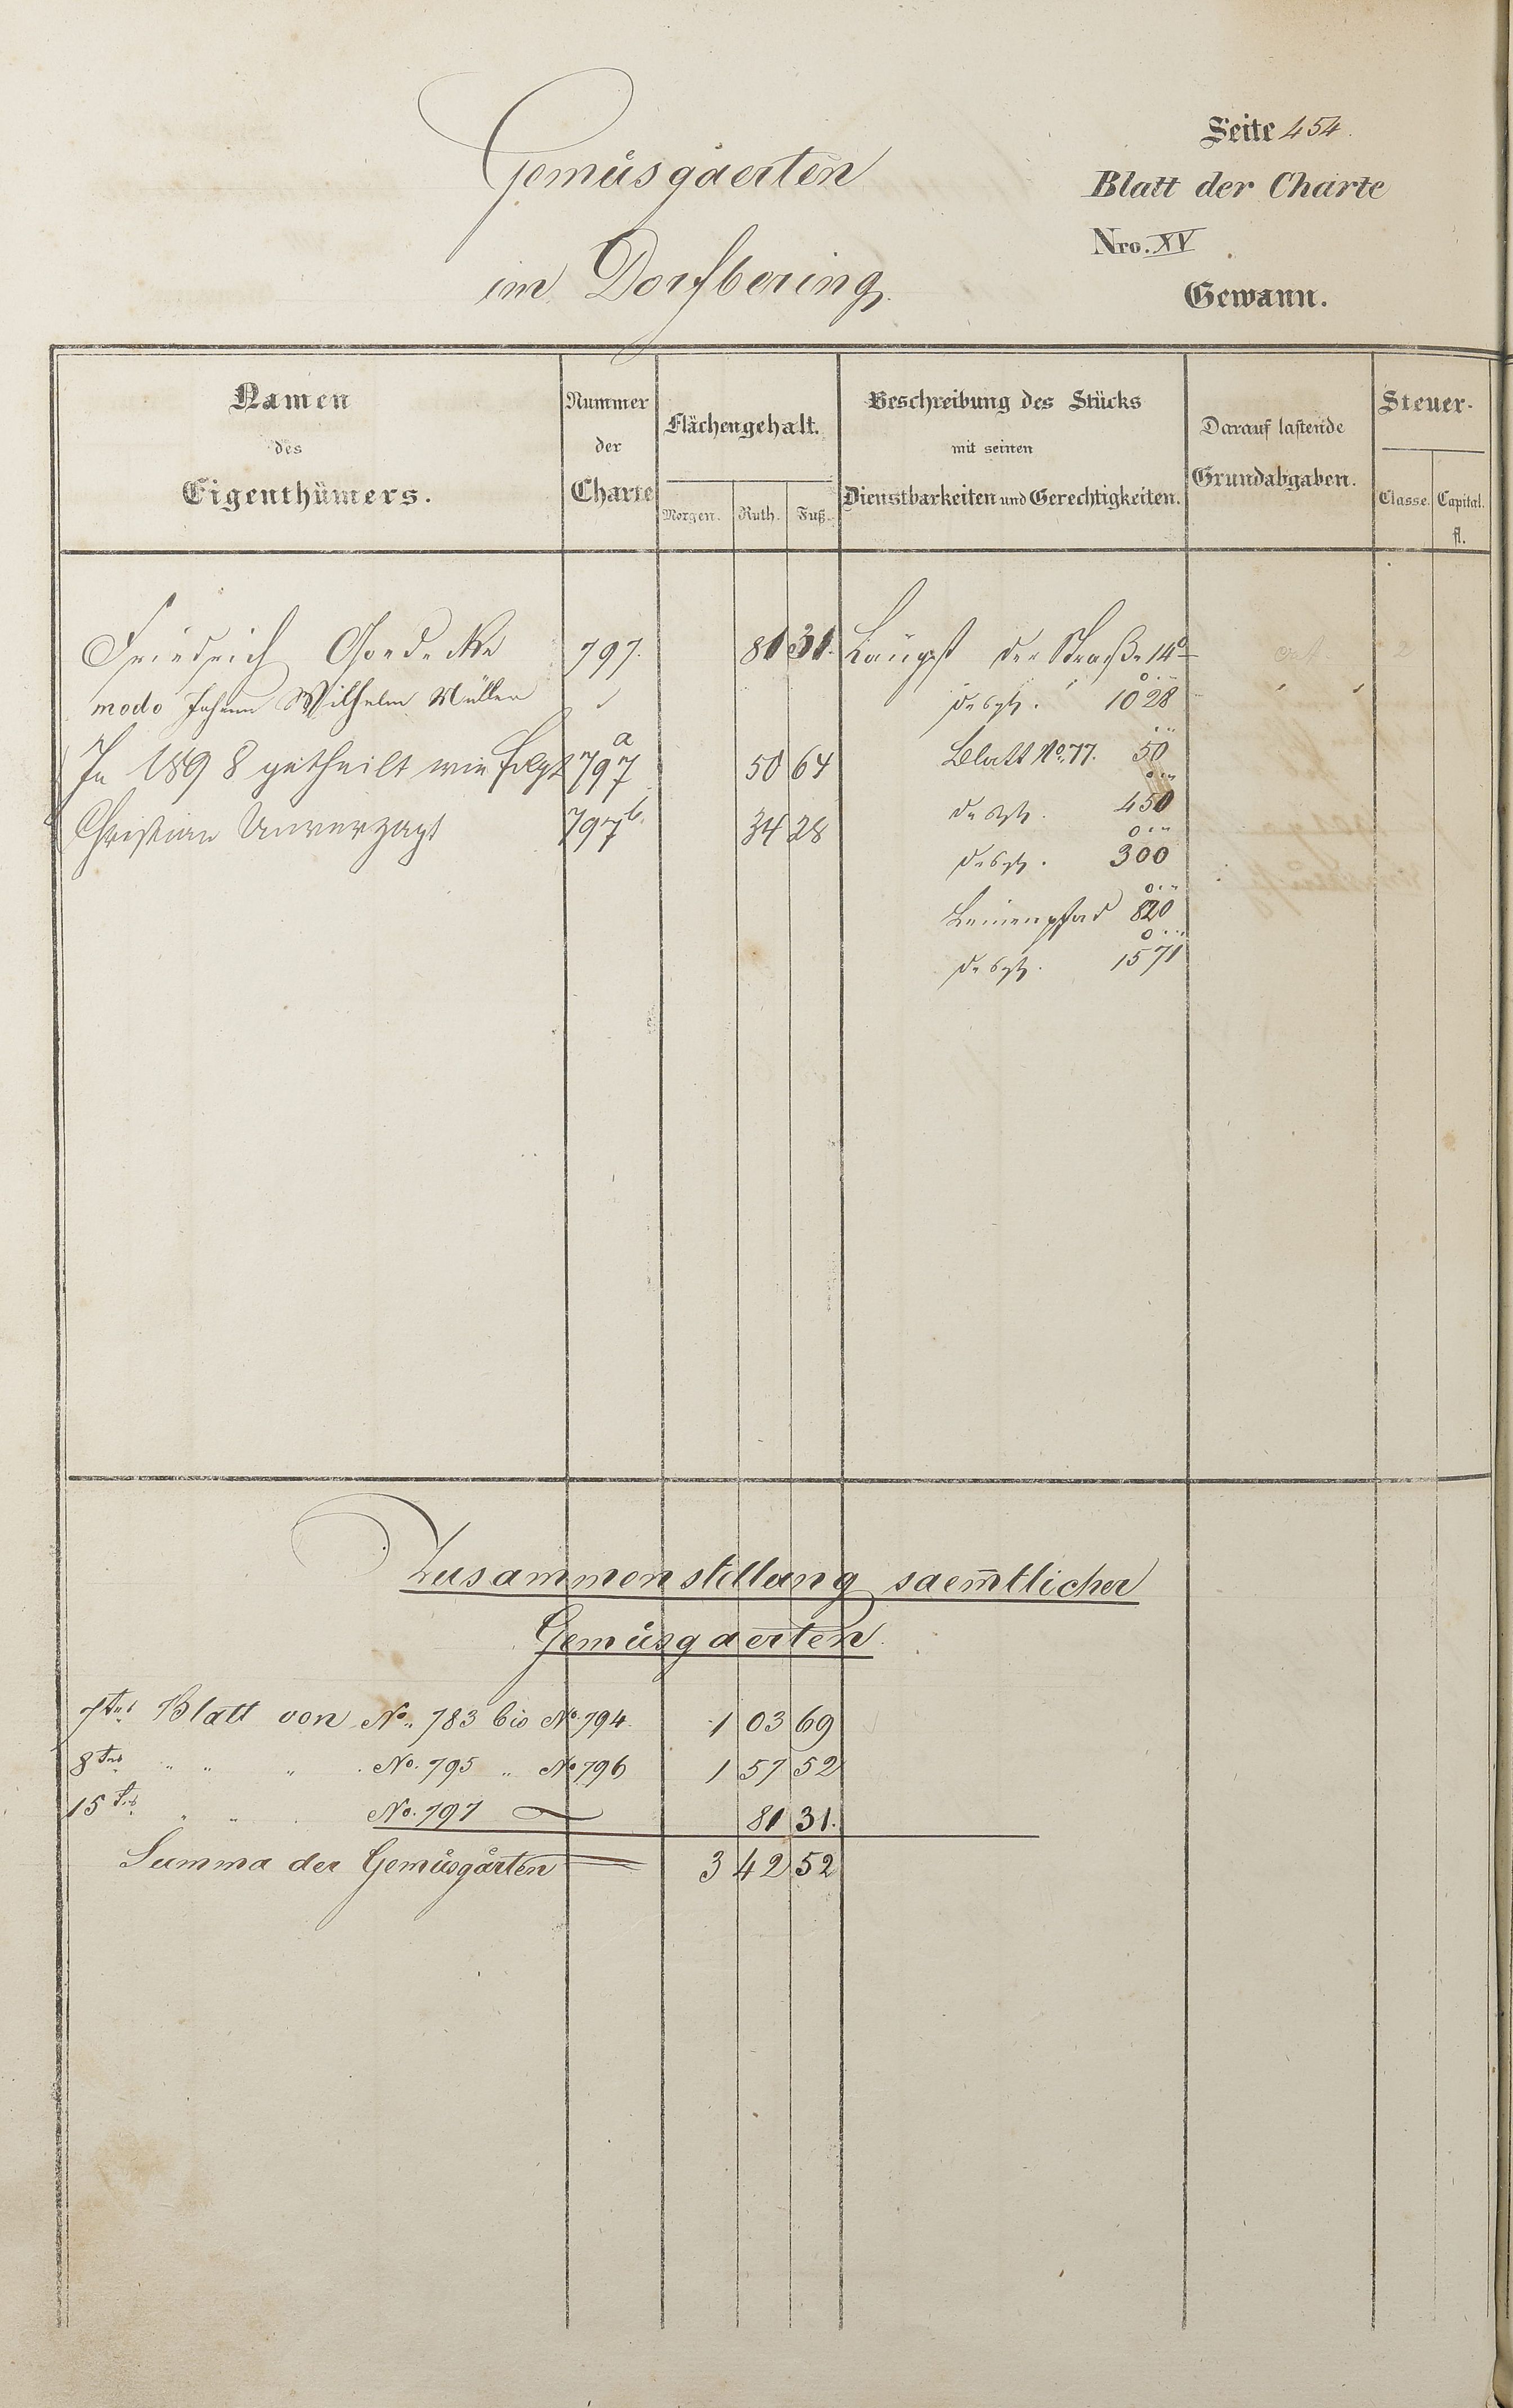 Seite 454.
Gemüsgaerten
Blatt der Charte
Nro. XV
im Dorfbering.
Gewann.
Namen des Eigenthümers.
Nummer der Charte
Flächengehalt.
Morgen. Ruth. Fuß.
Beschreibung des Stücks mit seinen Dienstbarkeiten und Gerechtigkeiten.
Darauf lastende Grundabgaben.
Steuer-
Classe. Capital. fl.
Friedrich Goedecke 797. 81 31. Längst der Straße 14°
modo Johann Wilhelm Müller desgl. 10 28
In 1898 getheilt wie folgt 797a 50 64 Blatt No. 77. 50
desgl. 450
Christian Unverzagt 797b. 34 28
desgl. 300
Leinenpfad 820
desgl. 1571
Zusammenstellung saem̅tlicher
Gemüsgaerten.
7tes Blatt von No. 783 bis No. 794. 1 03 69
8tes " " " No. 795 " No 796 1 57 52
15tes " " No. 797 81 31.
Summa der Gemüsgärten 3 42 52